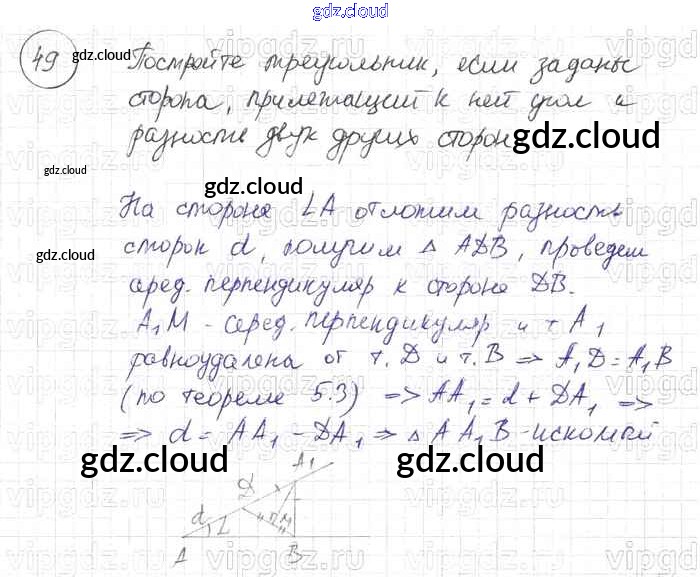 gdz.cloud
49
Постройте треугольник, если заданы
сторона, прилежащий к ней угол и
разность двух других сторон
На стороне ∠A отложим разность
сторон d, получим △ ADB, проведем
серед. перпендикуляр к стороне DB.
A₁M - серед. перпендикуляр и т. A₁
равноудалена от т. D и т. B => A₁D = A₁B
(по теореме 5.3) => AA₁ = d + DA₁ =>
=> d = AA₁ - DA₁ => △ AA₁B - искомый
A₁
D
d
M
L
A
B
gdz.cloud
gdz.cloud
gdz.cloud
gdz.cloud
gdz.cloud
gdz.cloud
vipgdz.ru